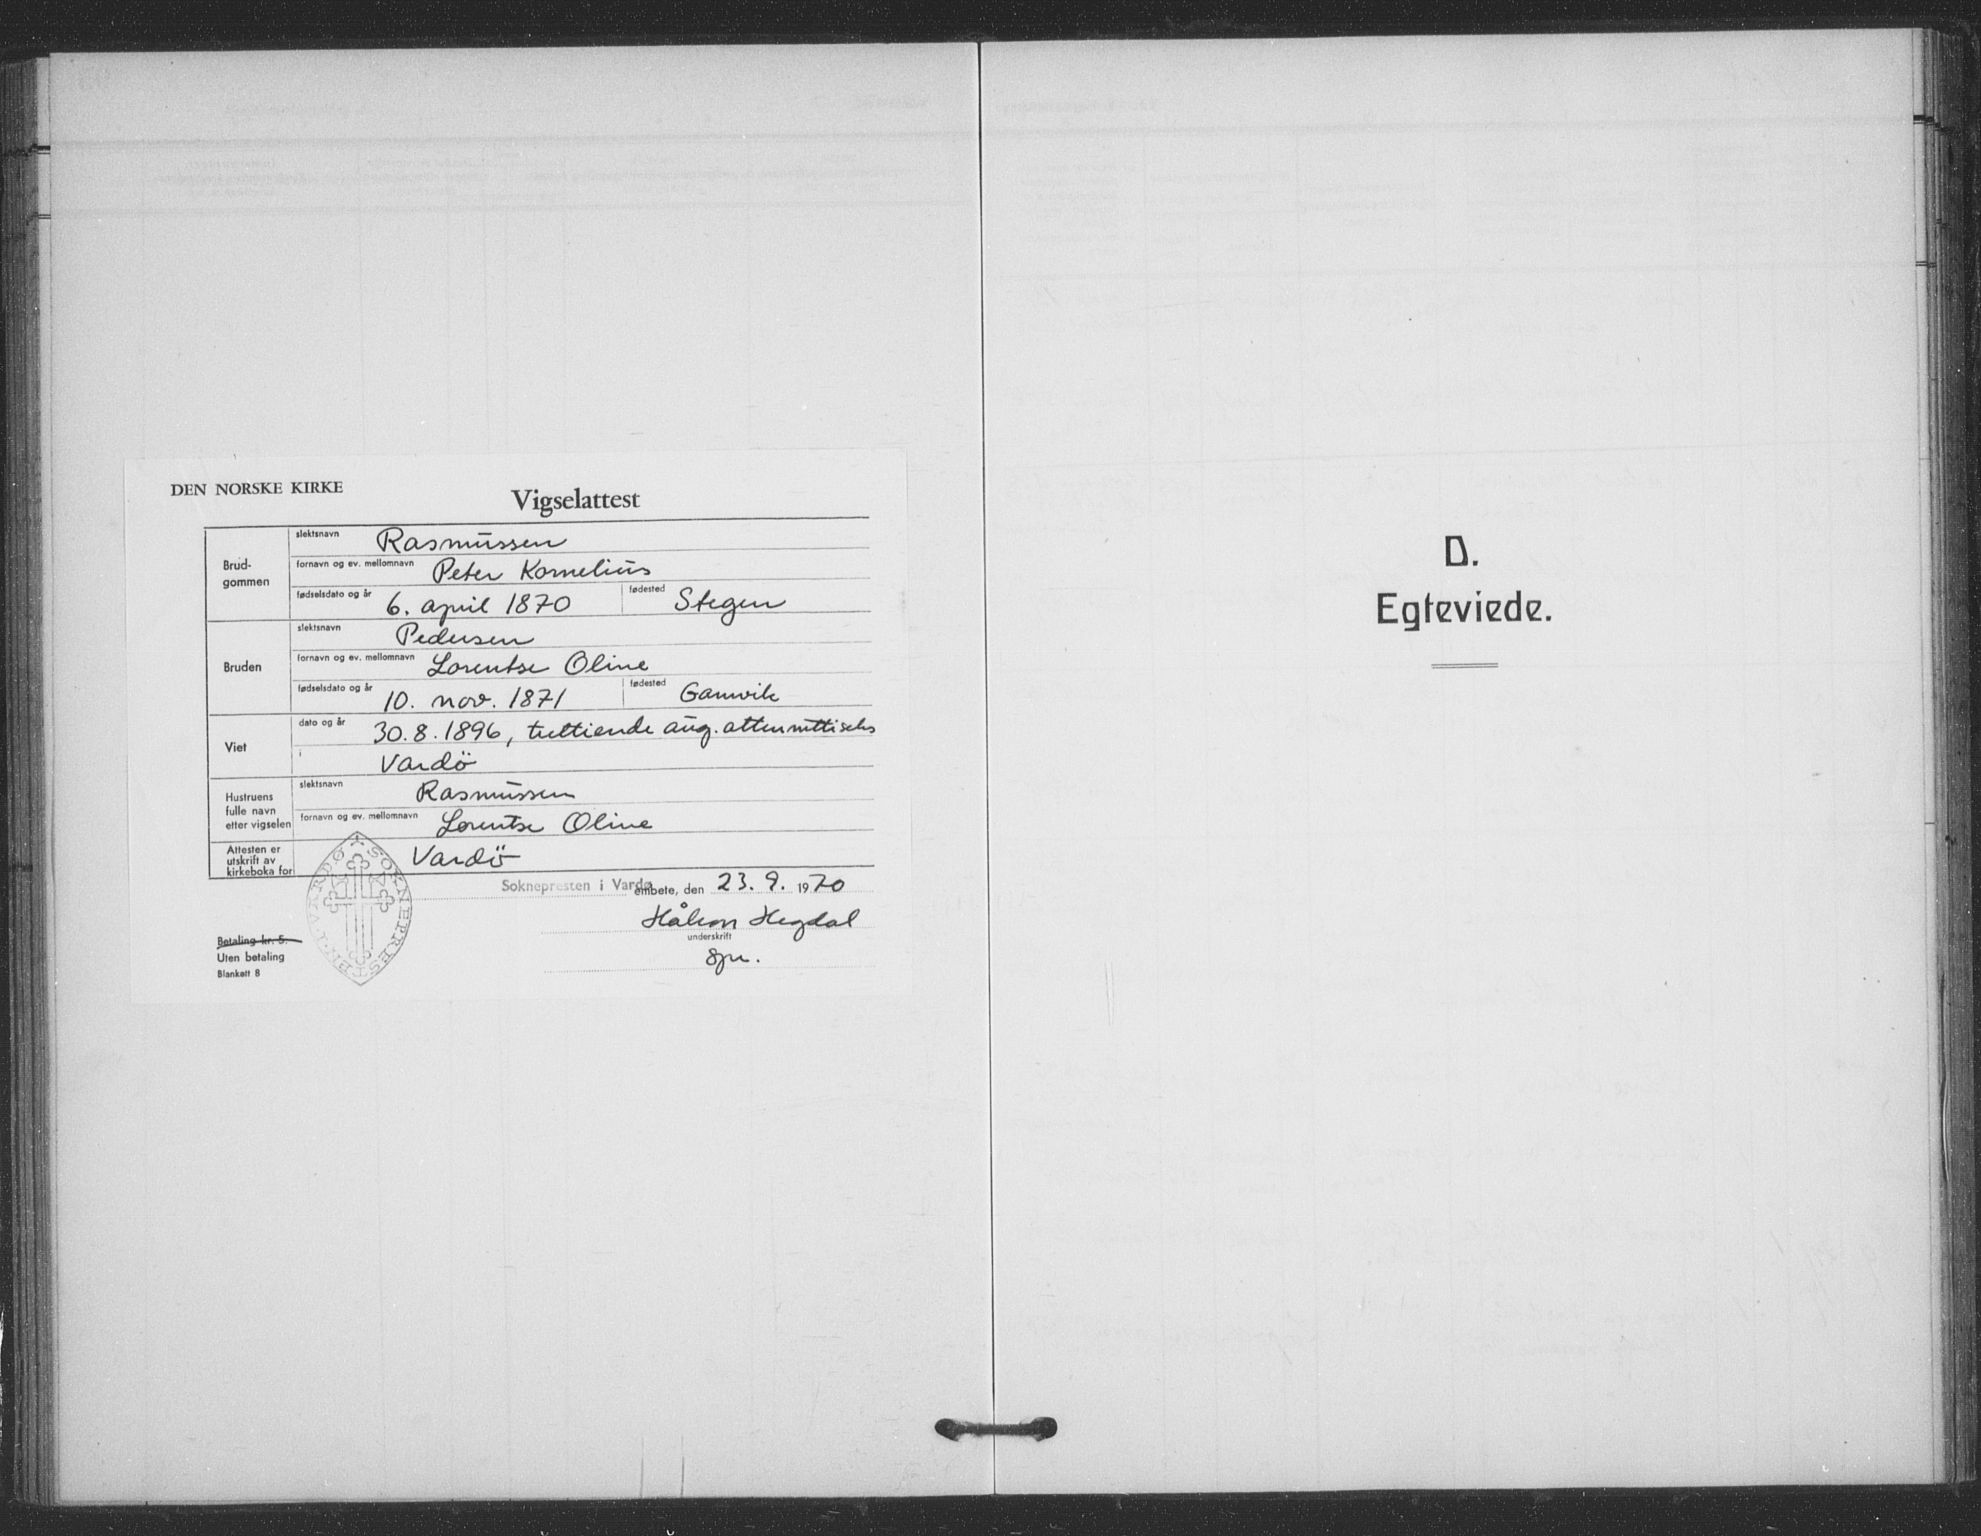 DEN NORSKE KIRKE
Vigselattest
Brud-
gommen
slektsnavn Rasmussen
fornavn og ev. mellomnavn Peter Kornelius
fødselsdato og år 6. april 1870 fødested Stegen
Bruden
slektsnavn Pedersen
fornavn og ev. mellomnavn Lorentse Oline
fødselsdato og år 10. nov. 1871 fødested Gamvik
Viet
dato og år 30.8.1896, trettiende aug. attennittiseks
i Vardø
Hustruens
fulle navn
etter vigselen
slektsnavn Rasmussen
fornavn og ev. mellomnavn Lorentse Oline
Attesten er
utskrift av
kirkeboka for
Vardö
Soknepresten i Vardø embete, den 23. 9. 1970
Håkon Hegdal
underskrift
spr.
Betaling kr. 5.
Uten betaling
Blankett 8
SOKNEPRESTEN · I · VARDØ
D.
Egteviede.